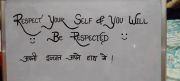 Respect Your Self & You Will
Be Respected
अपनी इज्जत अपने हाथ में !